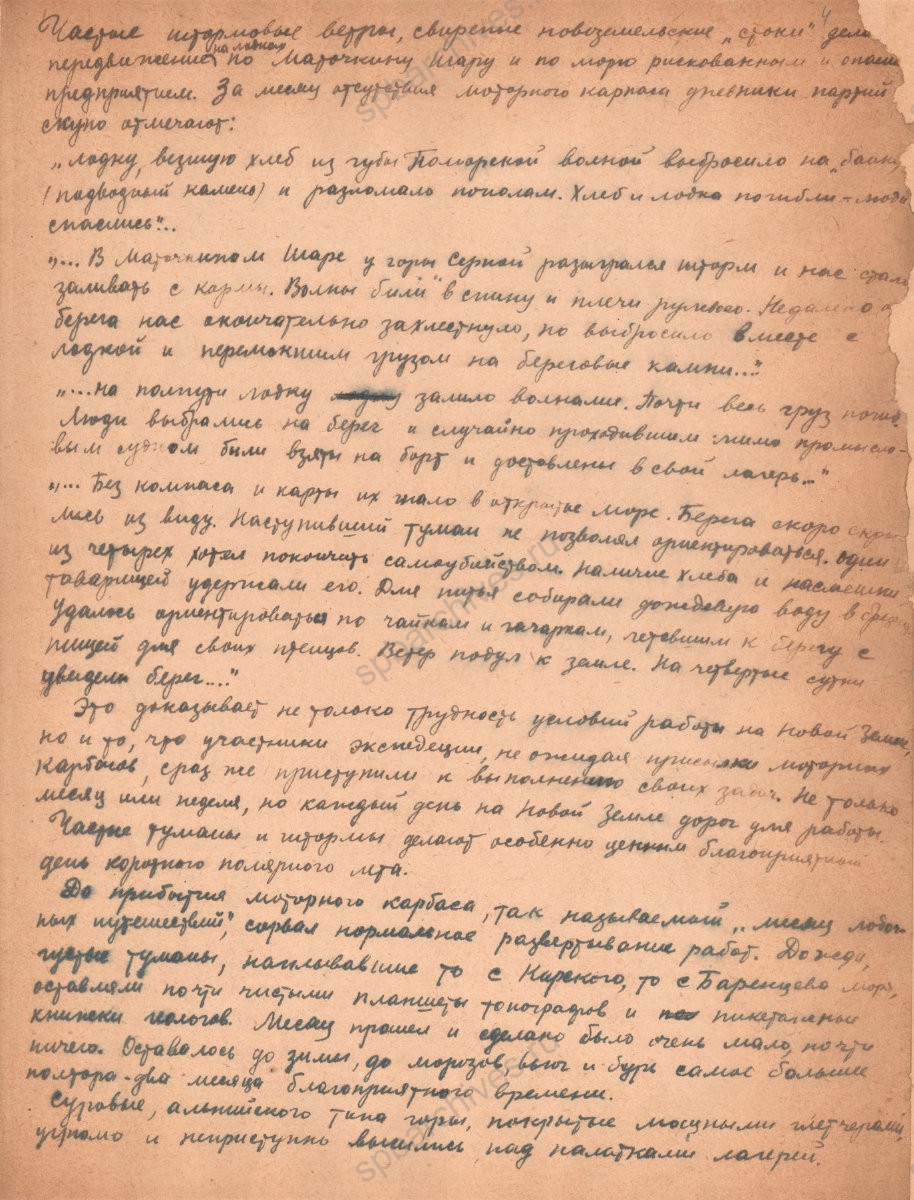 4
Частые штормовые ветры, свирепые новоземельские „стоки" дела
передвижение на лодках по Маточкину Шару и по морю рискованным и опасн
предприятием. За месяц отсутствия моторного карбаса дневники партий
скупо отмечают:
„лодку, везшую хлеб из губы Поморской волной выбросило на „банку
(подводный камень) и разломало пополам. Хлеб и лодка погибли – люди
спаслись"...
„... В Маточкином Шаре у горы Серной разыгрался шторм и нас стало
заливать с кормы. Волны били в спину и плечи рулевого. Недалеко о
берега нас окончательно захлестнуло, но выбросило вместе с
лодкой и перемокшим грузом на береговые камни..."
„...на полпути лодку залило волнами. Почти весь груз погиб.
Люди выбрались на берег и случайно проходившим мимо промысло-
вым судном были взяты на борт и доставлены в свой лагерь..."
„... Без компаса и карты их гнало в открытое море. Берега скоро скры
лись из виду. Наступивший туман не позволял ориентироваться. Один
из четырех хотел покончить самоубийством. Наличие хлеба и насмешки
товарищей удержали его. Для питья собирали дождевую воду в
Удалось ориентироваться по чайкам и гагаркам, летевшим к берегу с
пищей для своих птенцов. Ветер подул к земле. На четвертые сутки
увидели берег...."
Это доказывает не только трудность условий работы на Новой Земле,
но и то, что участники экспедиции, не ожидая присылки моторных
карбасов, сраз же приступили к выполнению своих задач. Не только
месяц или неделя, но каждый день на Новой Земле дорог для работы.
Частые туманы и штормы делают особенно ценным благоприятный
день короткого полярного лета.
До прибытия моторного карбаса, так называемый „месяц лодоч-
ных путешествий", сорвал нормальное развертывание работ. Дожди,
густые туманы, наплывавшие то с Карского, то с Баренцева моря,
оставляли почти чистыми планшеты топографов и пикетажные
книжки геологов. Месяц прошел и сделано было очень мало, почти
ничего. Оставалось до зимы, до морозов, вьюг и бурь самое большее
полтора-два месяца благоприятного времени.
Суровые, альпийского типа горы, покрытые мощными глетчерами,
угрюмо и неприступно высились над палатками лагерей.
spbarchives.ru
spbarchives.ru
spbarchives.ru